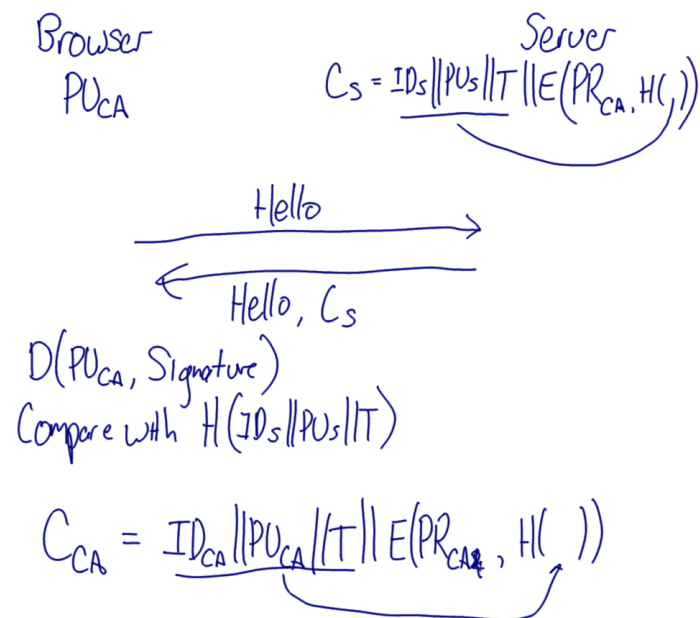 Browser
PU_CA
Server
C_S = ID_S||PU_S||T||E(PR_CA, H( ))
Hello
Hello, C_S
D(PU_CA, Signature)
Compare with H(ID_S||PU_S||T)
C_CA = ID_CA||PU_CA||T||E(PR_CA, H( ))